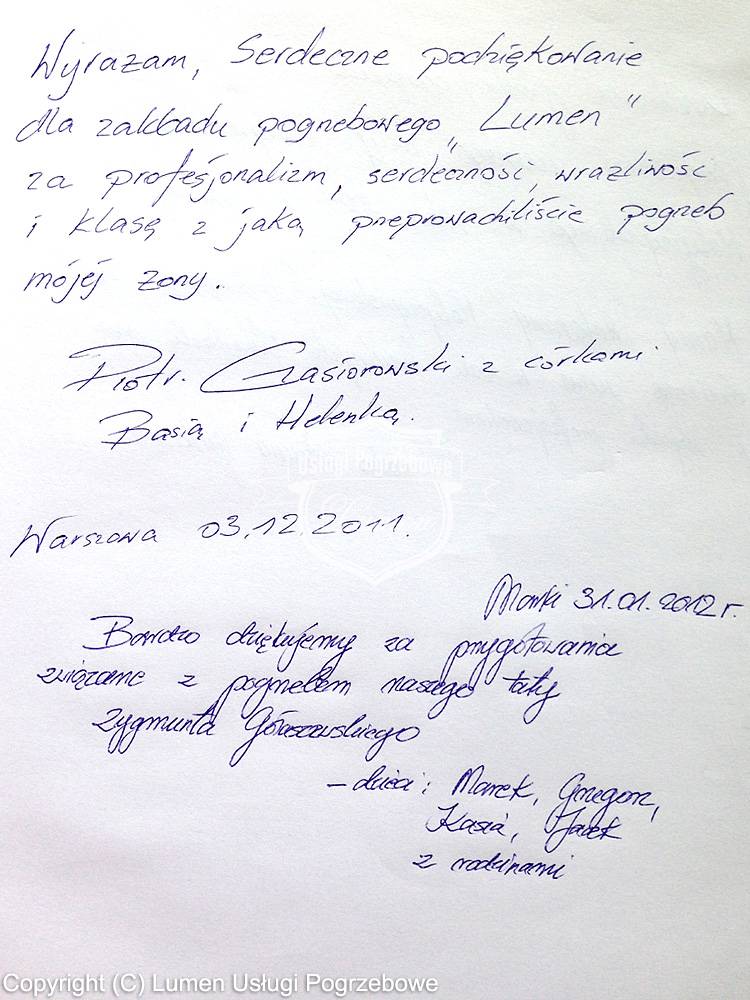 Wyrażam, Serdeczne podziękowanie
dla zakładu pogrzebowego „Lumen”
za profesjonalizm, serdeczność, wrażliwość
i klasę z jaką przeprowadziliście pogrzeb
mójej żony.
Piotr. Gąsiorowski z córkami
Basią i Helenką.
Usługi Pogrzebowe
Warszawa 03.12.2011.
Marki 31.01.2012 r.
Bardzo dziękujemy za przygotowania
związane z pogrzebem naszego taty
Zygmunta
– dzieci: Marek, Grzegorz,
Kasia, Jacek
z rodzinami
Copyright (C) Lumen Usługi Pogrzebowe